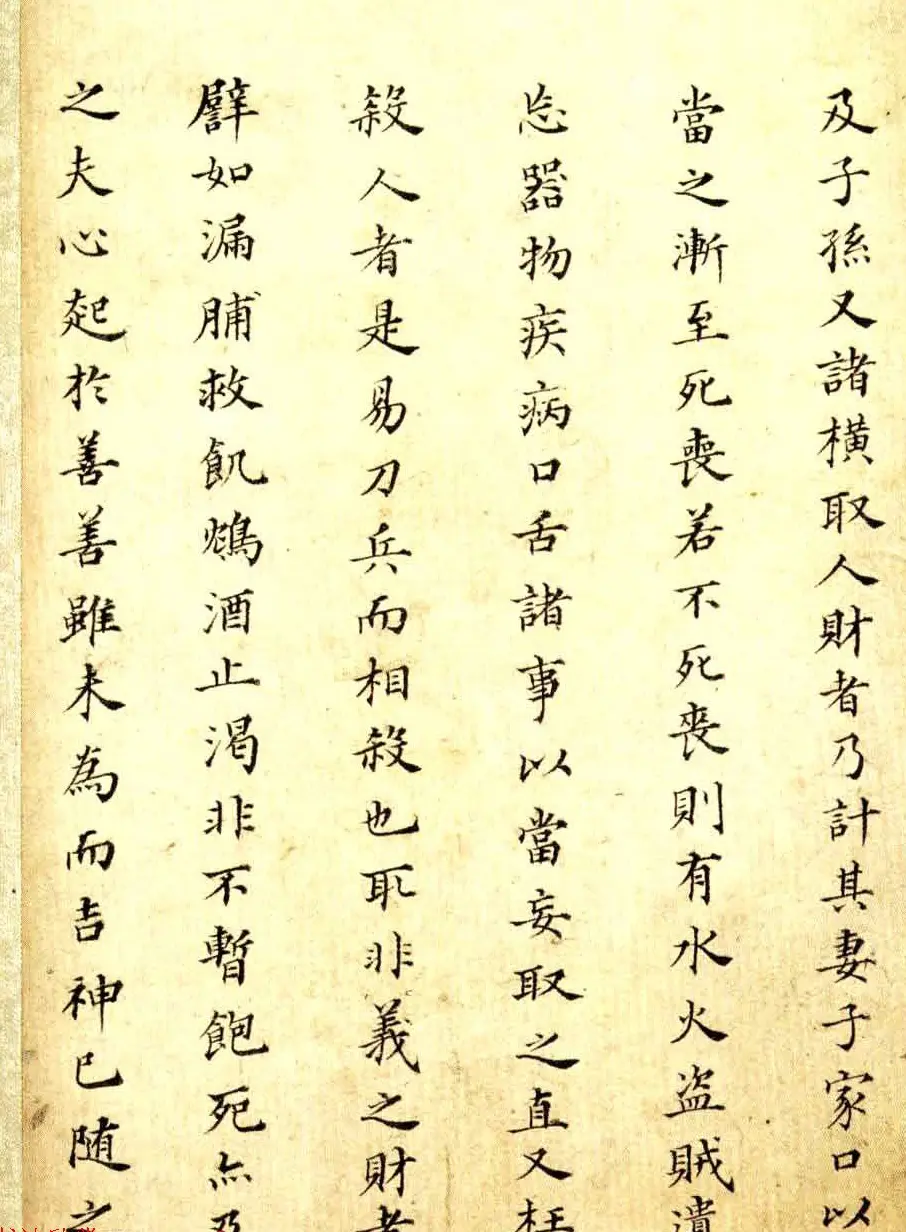 及子孫又諸横取人財者乃計其妻子家口以
當之漸至死喪若不死喪則有水火盜賊遺
忘器物疾病口舌諸事以當妄取之直又枉
殺人者是易刀兵而相殺也取非義之財者
譬如漏脯救飢鴆酒止渴非不暫飽死亦及
之夫心起於善善雖未為而吉神已随之